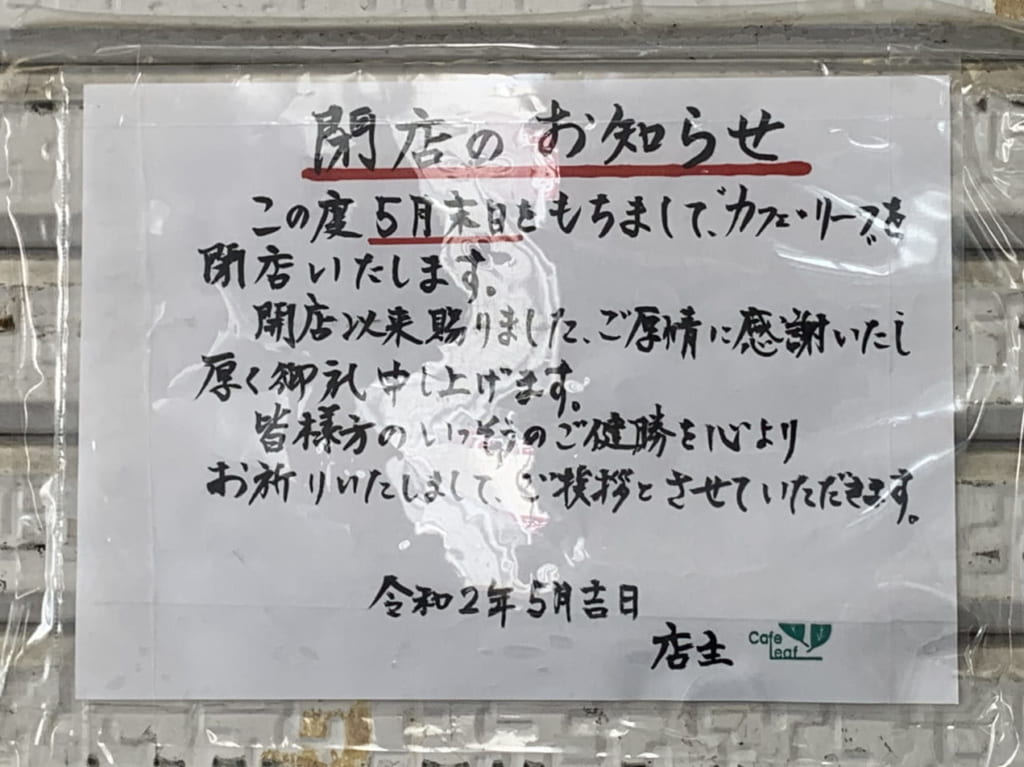 閉店のお知らせ
この度5月末日をもちまして、カフェ・リーフを
閉店いたします。
開店以来賜りました、ご厚情に感謝いたし
厚く御礼申し上げます。
皆様方のいっそうのご健勝を心より
お祈りいたしまして、ご挨拶とさせていただきます。
令和2年5月吉日
店主
Cafe
Leaf